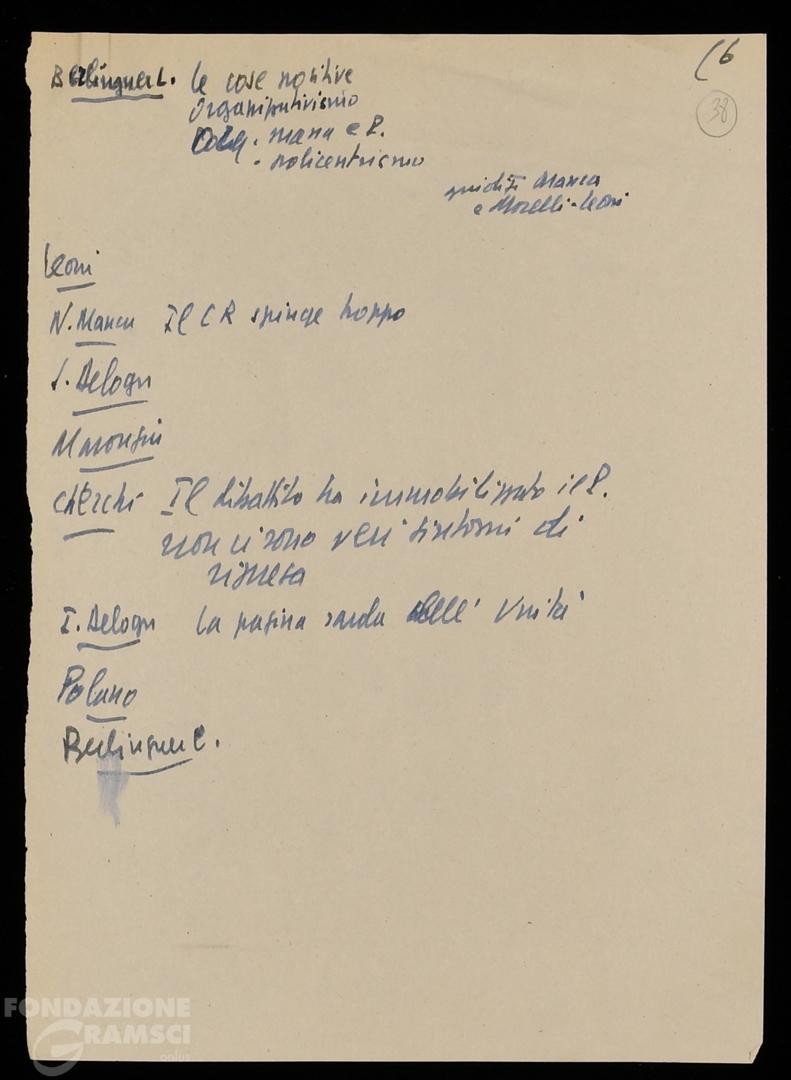 (6
38
Berlinguer L. Le cose positive
organizzativismo
Coll. massa e P.
- policentrismo
Manca
e Morelli - Leoni
Leoni
N. Manca Il CR spinge troppo
S. Delogu
Marongiu
Cherchi Il dibattito ha immobilizzato il P.
non ci sono veri sintomi di
ripresa
I. Delogu La pagina sarda dell'Unità
Polano
Berlinguer E.
FONDAZIONE
GRAMSCI
onlus